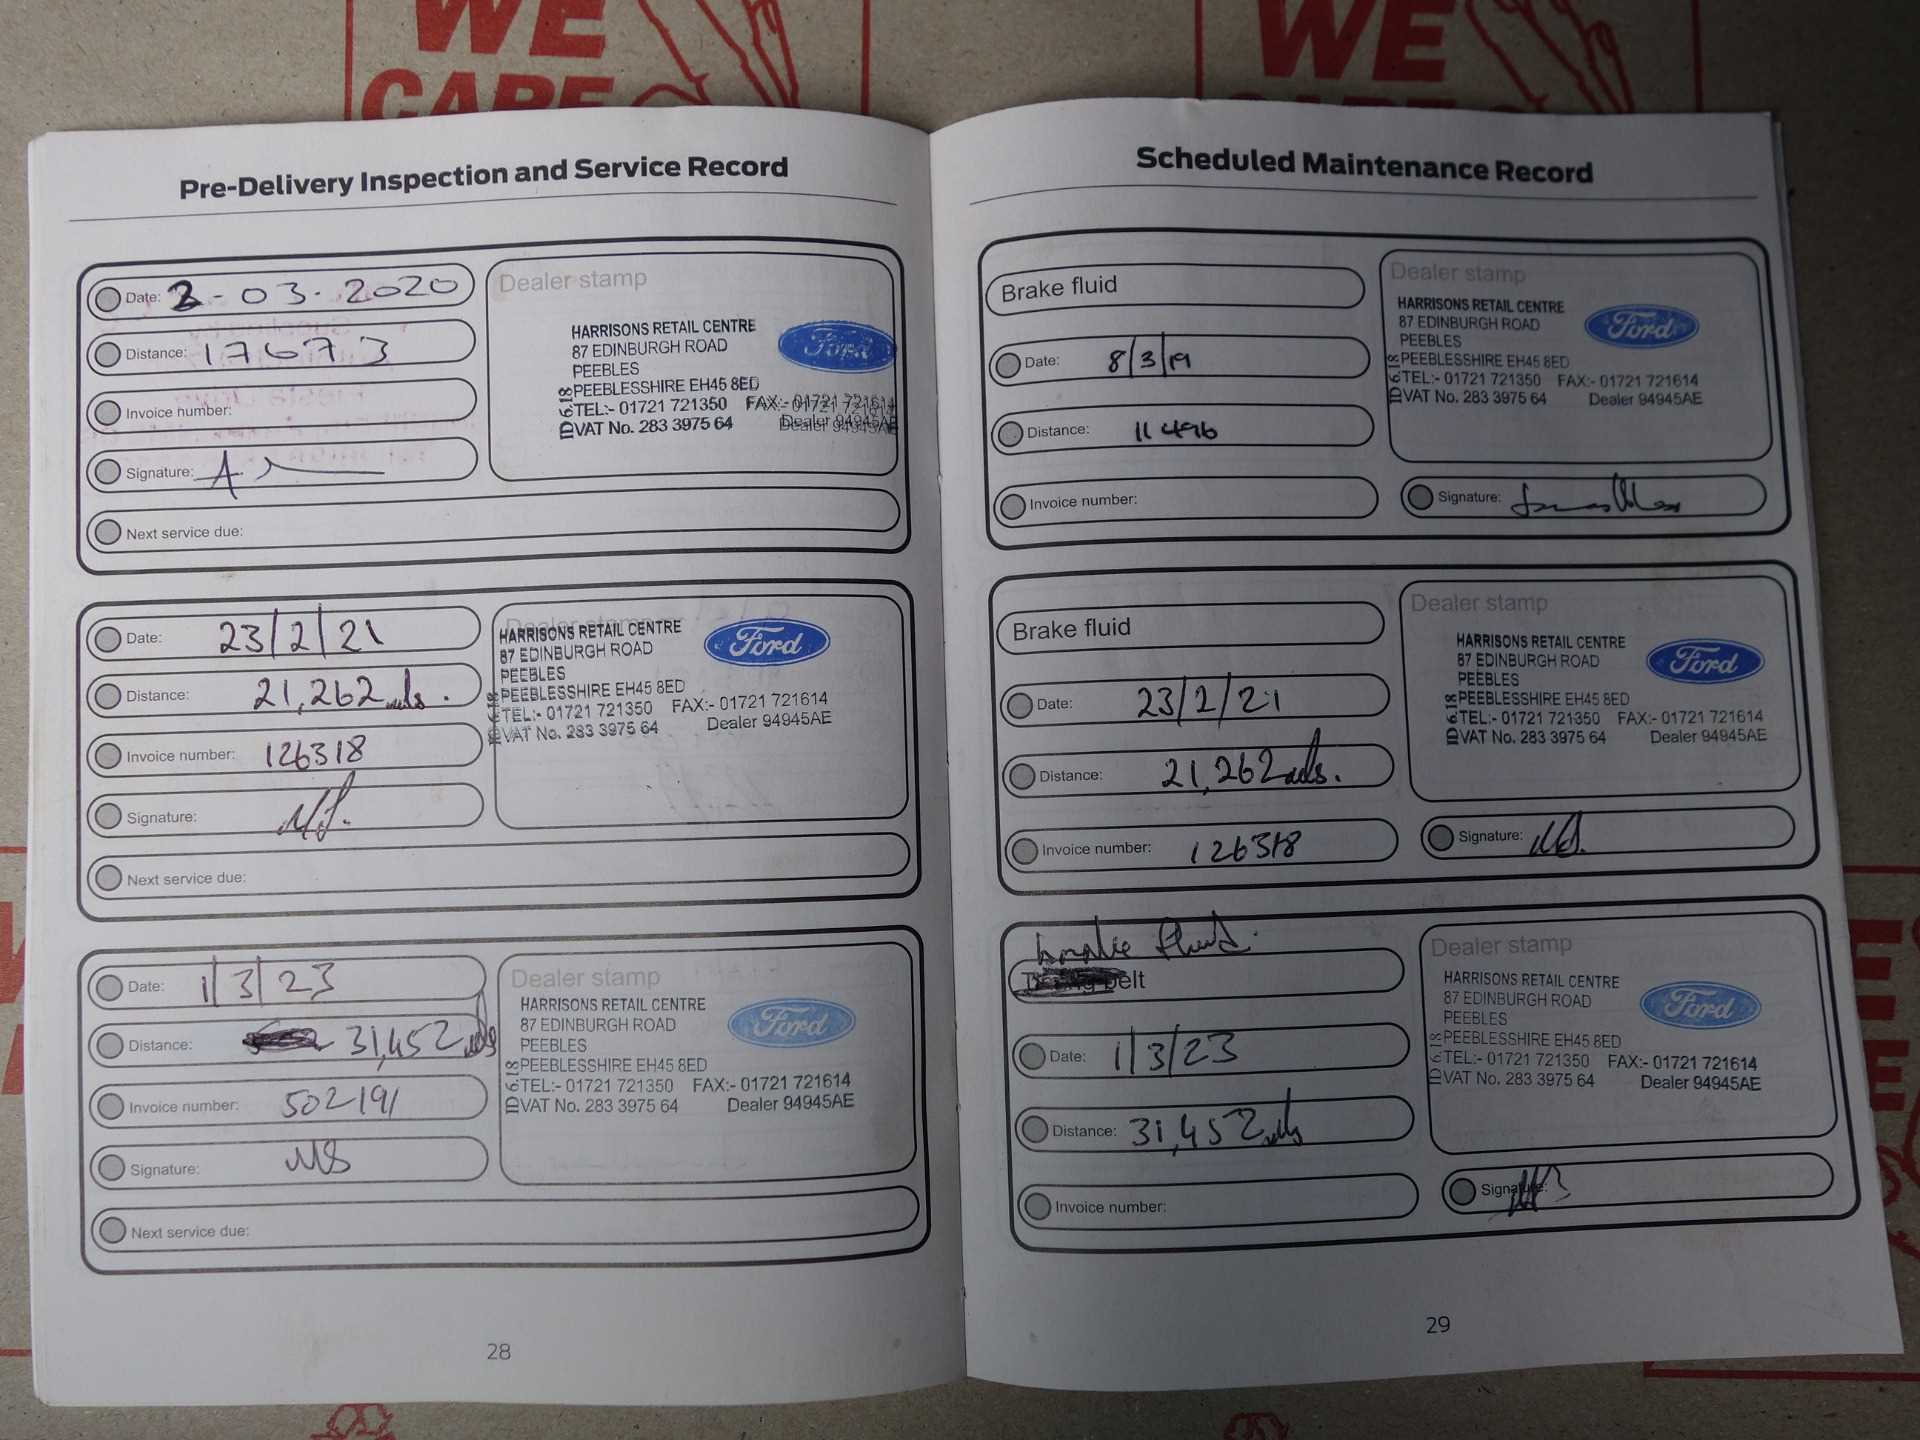 WE
CARE
WE
CARE
Pre-Delivery Inspection and Service Record
Date: 2-03.2020
Distance: 17673
Invoice number:
Signature:
Next service due:
Dealer stamp
HARRISONS RETAIL CENTRE
87 EDINBURGH ROAD
PEEBLES
PEEBLESSHIRE EH45 8ED
TEL:- 01721 721350 FAX:- 01721 721614
VAT No. 283 3975 64 Dealer 94945AE
ID 6.18
Ford
Date: 23/2/21
Distance: 21,262 mls.
Invoice number: 126318
Signature:
Next service due:
Dealer stamp
HARRISONS RETAIL CENTRE
87 EDINBURGH ROAD
PEEBLES
PEEBLESSHIRE EH45 8ED
TEL:- 01721 721350 FAX:- 01721 721614
VAT No. 283 3975 64 Dealer 94945AE
ID 6.18
Ford
Date: 1/3/23
Distance: 31,452 mls
Invoice number: 502191
Signature: MS
Next service due:
Dealer stamp
HARRISONS RETAIL CENTRE
87 EDINBURGH ROAD
PEEBLES
PEEBLESSHIRE EH45 8ED
TEL:- 01721 721350 FAX:- 01721 721614
VAT No. 283 3975 64 Dealer 94945AE
ID 6.18
Ford
28
Scheduled Maintenance Record
Brake fluid
Date: 8/3/19
Distance: 11496
Invoice number:
Dealer stamp
HARRISONS RETAIL CENTRE
87 EDINBURGH ROAD
PEEBLES
PEEBLESSHIRE EH45 8ED
TEL:- 01721 721350 FAX:- 01721 721614
VAT No. 283 3975 64 Dealer 94945AE
ID 6.18
Ford
Signature:
Brake fluid
Date: 23/2/21
Distance: 21,262 mls.
Invoice number: 126318
Dealer stamp
HARRISONS RETAIL CENTRE
87 EDINBURGH ROAD
PEEBLES
PEEBLESSHIRE EH45 8ED
TEL:- 01721 721350 FAX:- 01721 721614
VAT No. 283 3975 64 Dealer 94945AE
ID 6.18
Ford
Signature:
brake fluid.
belt
Date: 1/3/23
Distance: 31,452 mls
Invoice number:
Dealer stamp
HARRISONS RETAIL CENTRE
87 EDINBURGH ROAD
PEEBLES
PEEBLESSHIRE EH45 8ED
TEL:- 01721 721350 FAX:- 01721 721614
VAT No. 283 3975 64 Dealer 94945AE
ID 6.18
Ford
Signature:
29